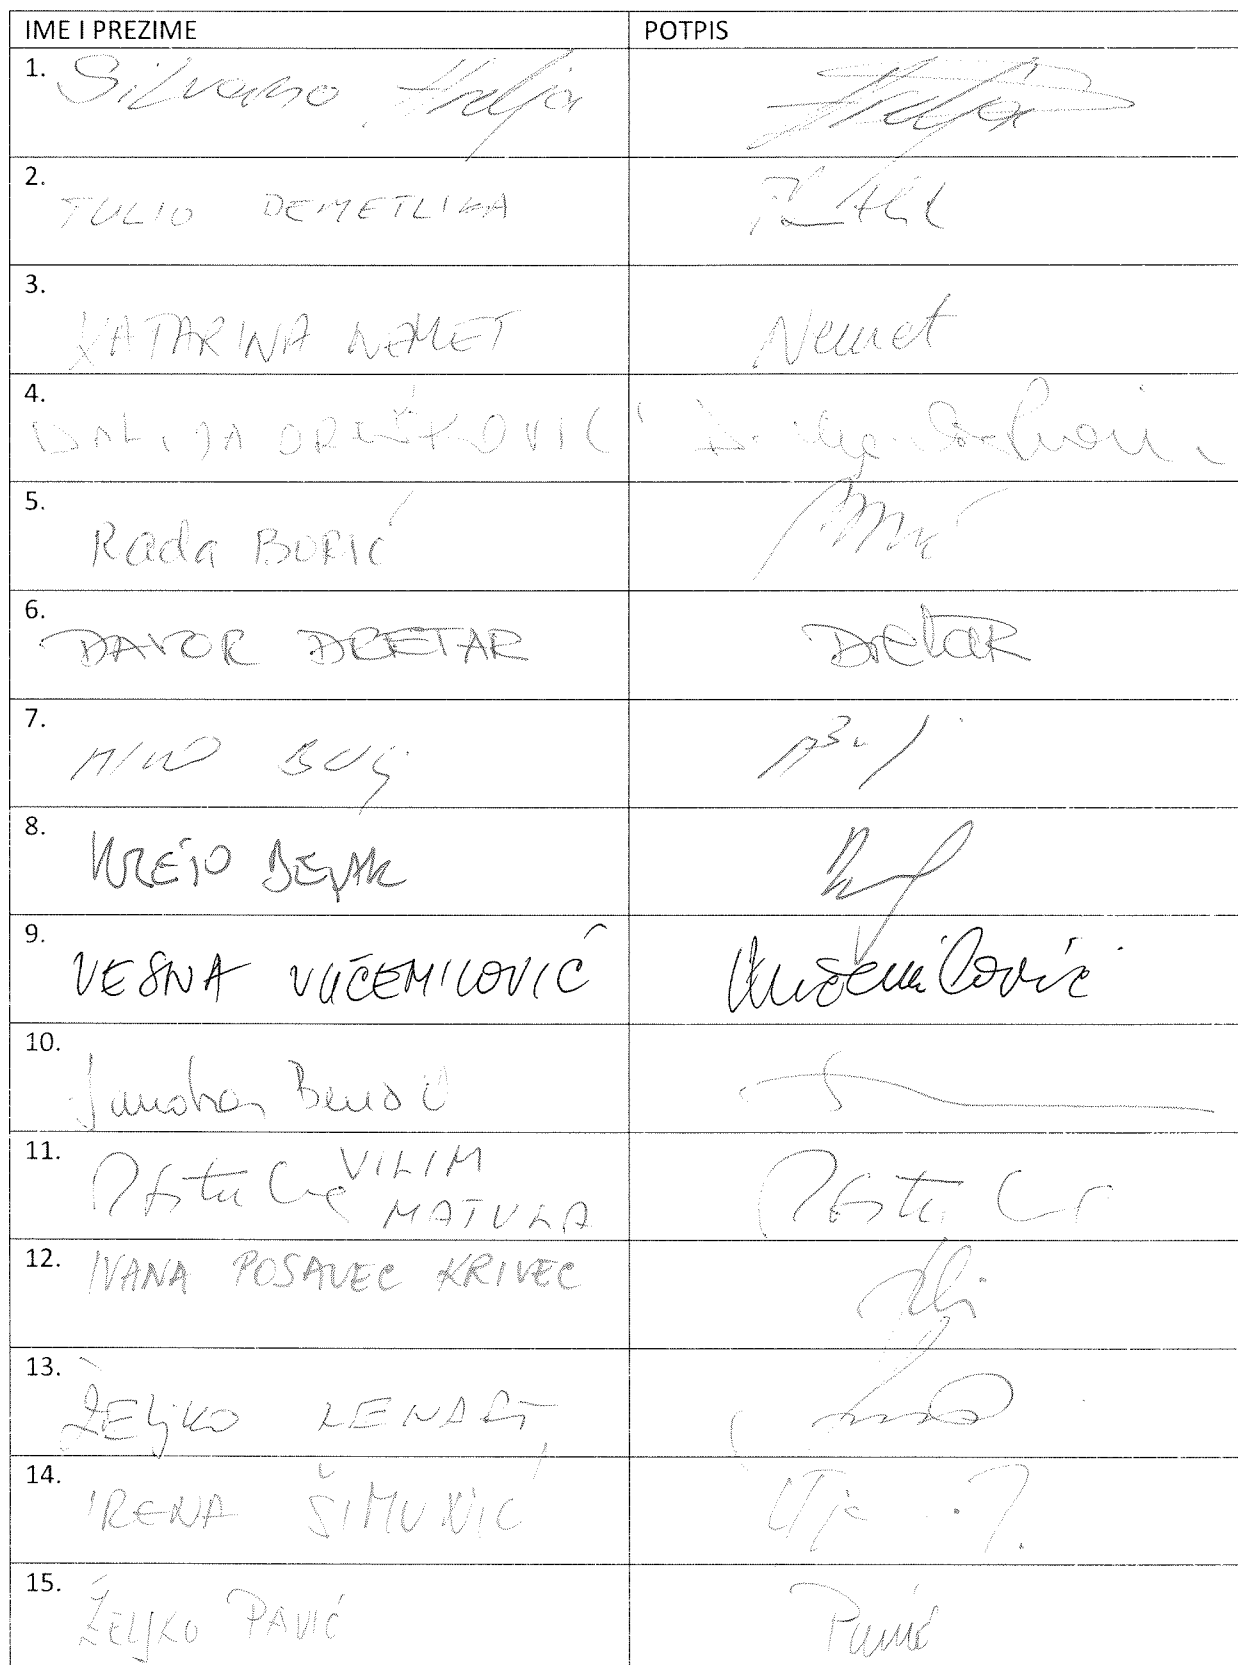 IME I PREZIME POTPIS
1. Silvano Hrelja Hrelja
2. TULIO DEMETLIKA
3. KATARINA NEMET Nemet
4. DALIJA OREŠKOVIĆ
5. Rada BORIĆ
6. DAVOR DRETAR Dretar
7. MIRO BULJ
8. KREŠO BELJAK
9. VESNA VUČEMILOVIĆ Vučemilović
10. Sandra Benčić
11. VILIM
MATULA
12. IVANA POSAVEC KRIVEC
13. ŽELJKO LENART
14. IRENA ŠIMUNIĆ
15. ŽELJKO PAVIĆ Pavić